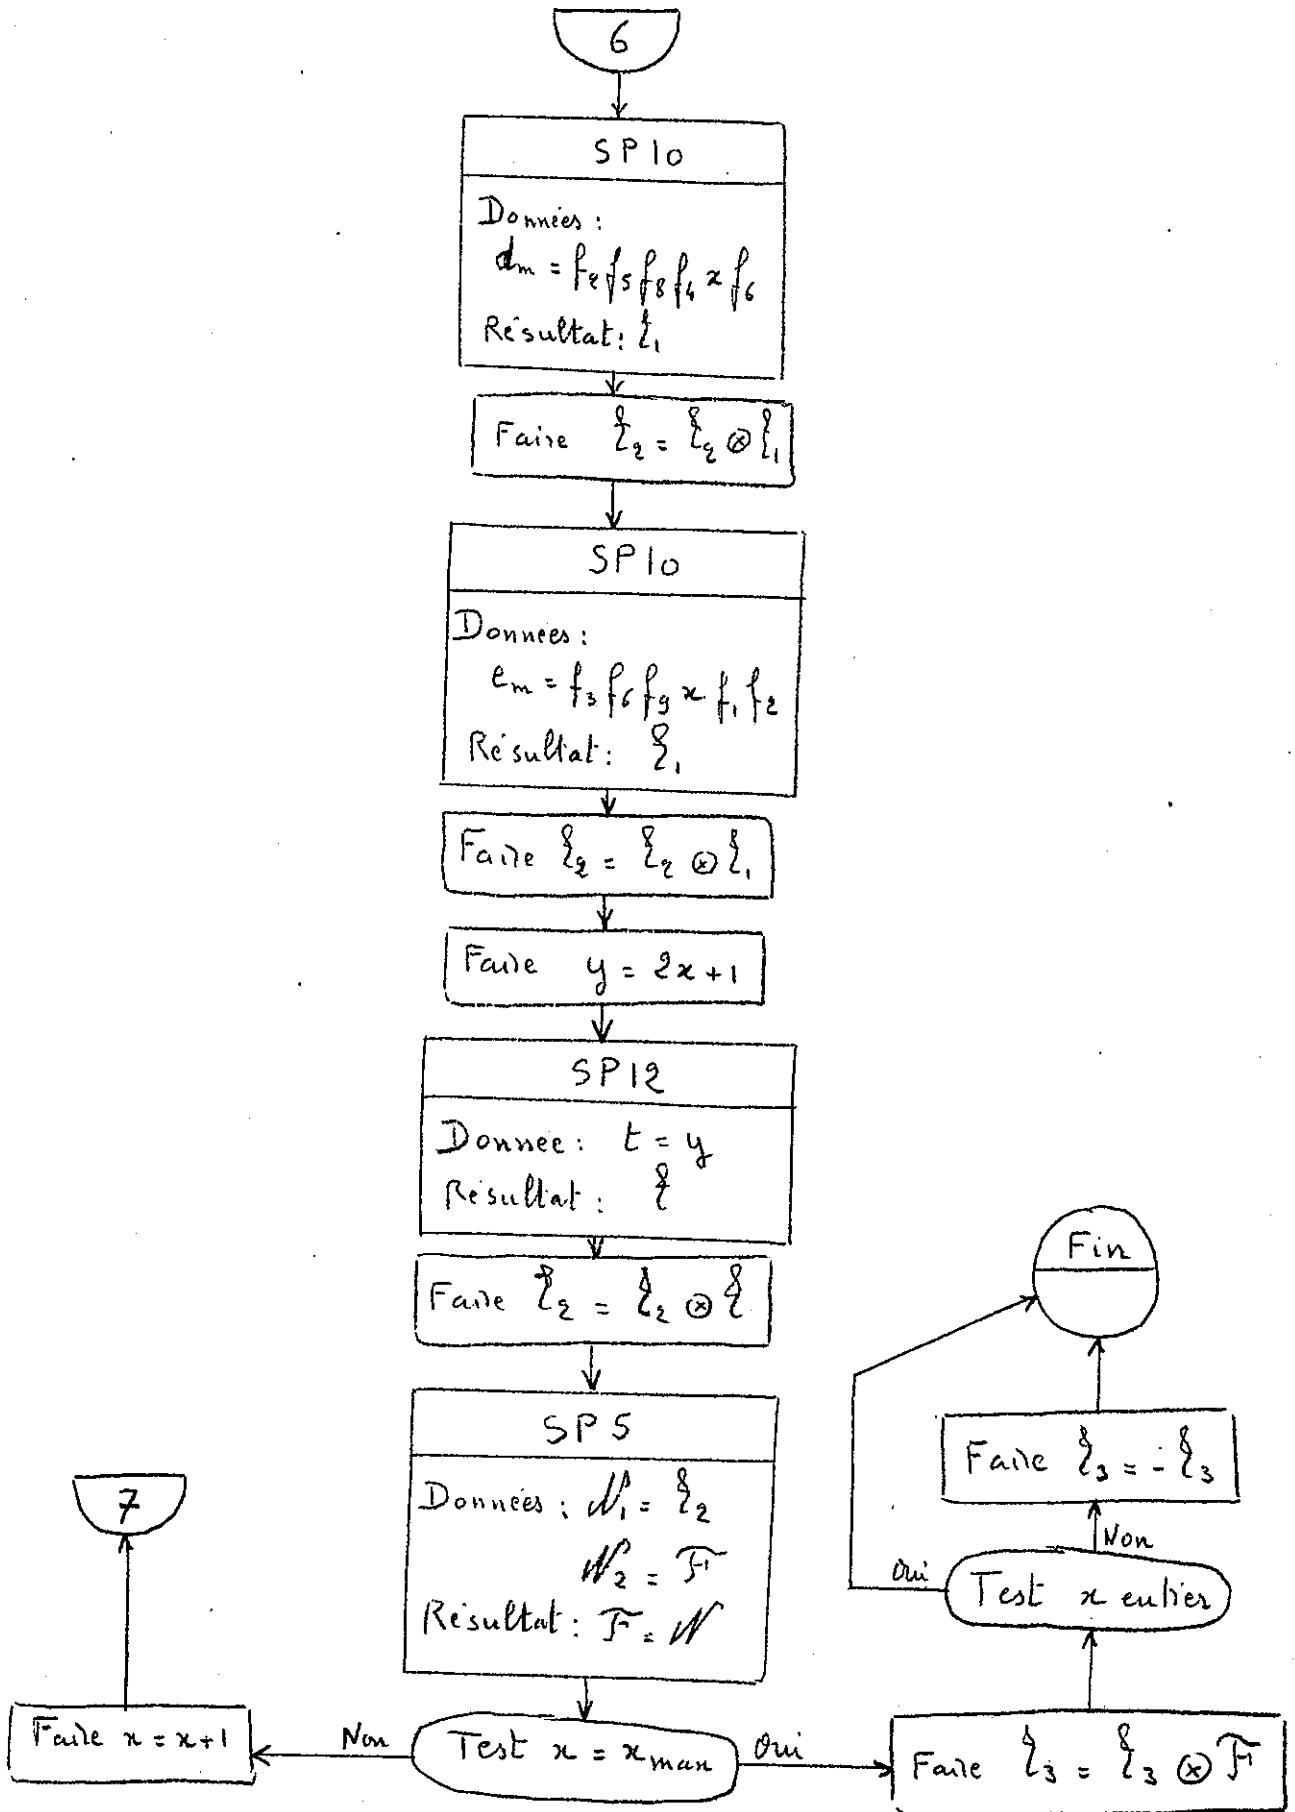 6
SP10
Données :
dm = f₂ f₅ f₈ f₄ x f₆
Résultat : ξ₁
Faire ξ₂ = ξ₂ ⊗ ξ₁
SP10
Données :
em = f₃ f₆ f₉ x f₁ f₂
Résultat : ξ₁
Faire ξ₂ = ξ₂ ⊗ ξ₁
Faire y = 2x+1
SP12
Donnée : t = y
Résultat : ξ
Faire ξ₂ = ξ₂ ⊗ ξ
SP5
Données : 𝒩₁ = ξ₂
𝒩₂ = ℱ
Résultat : ℱ = 𝒩
Test x = xmax
Non
Faire x = x+1
7
Oui
Faire ξ₃ = ξ₃ ⊗ ℱ
Test x entier
Oui
Non
Faire ξ₃ = - ξ₃
Fin